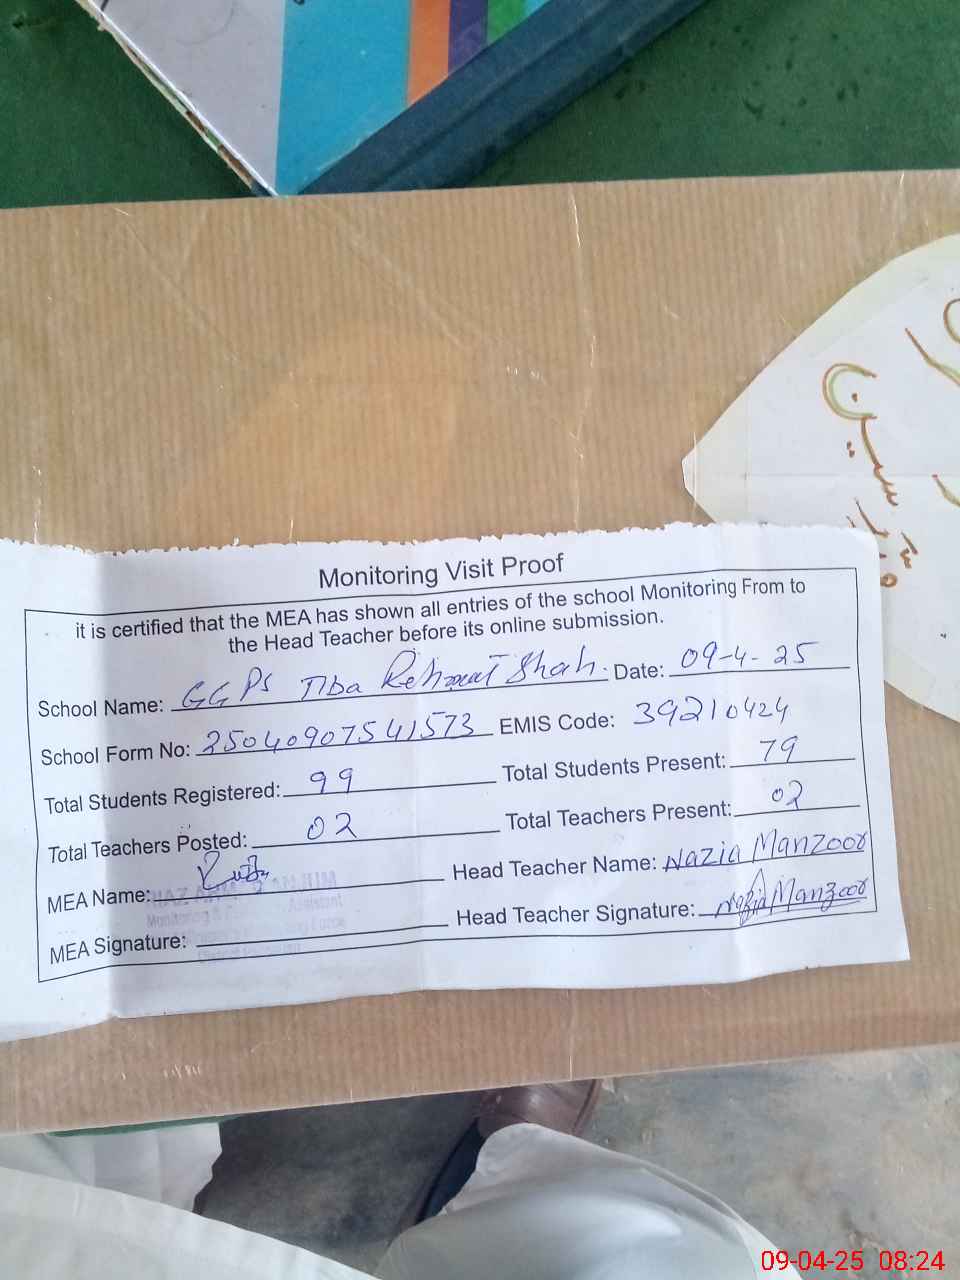 Monitoring Visit Proof
it is certified that the MEA has shown all entries of the school Monitoring From to
the Head Teacher before its online submission.
School Name: GGPS Tiba Rehmat Shah. Date: 09-4-25
School Form No: 25040907541573 EMIS Code: 39210424
Total Students Registered: 99 Total Students Present: 79
Total Teachers Posted: 02 Total Teachers Present: 02
MEA Name: Head Teacher Name: Nazia Manzoor
MEA Signature: Head Teacher Signature: Nazia Manzoor
09-04-25 08:24